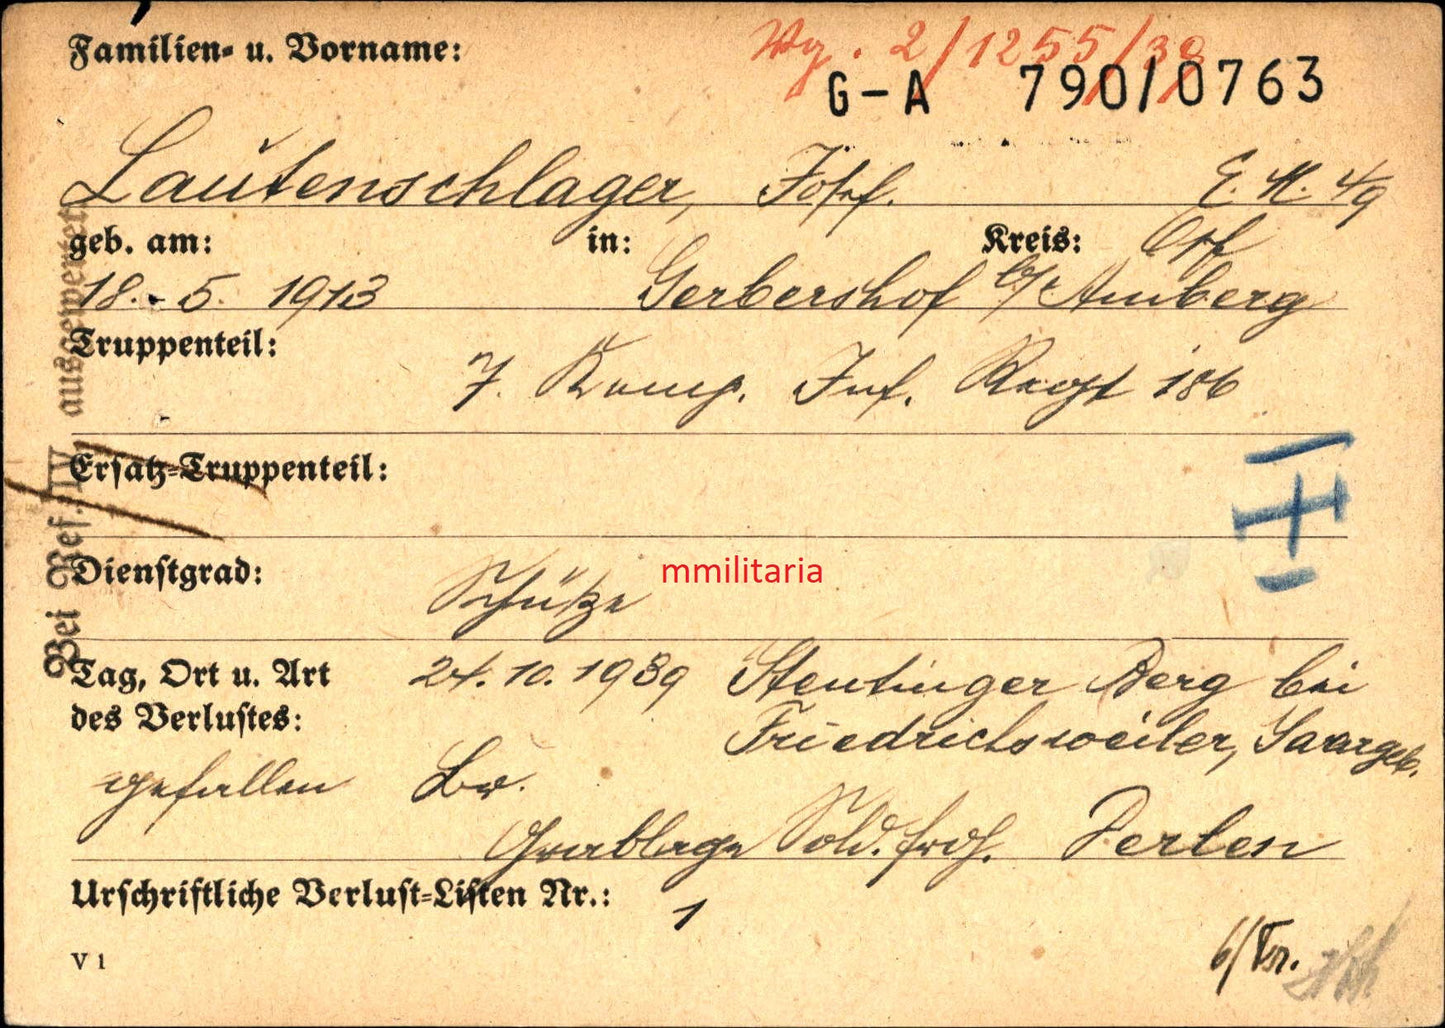 Familien- u. Vorname:
2/1255/38
G-A 790/0763
Lautenschlager, Josef.
E. M. 4/9
geb. am: in: Kreis:
18.-5. 1913 Gerbershof b/ Amberg
Truppenteil:
7. Komp. Inf. Regt 186
Ersatz-Truppenteil:
Dienstgrad:
Schütze
mmilitaria
Tag, Ort u. Art 24.10.1939 Berg bei
des Verlustes: Friedrichsweiler, Saargeb.
gefallen
Grablage Sold. frdf. Perlen
Urschriftliche Verlust-Listen Nr.: 1
V 1
Bei Ref. IV ausgewertet